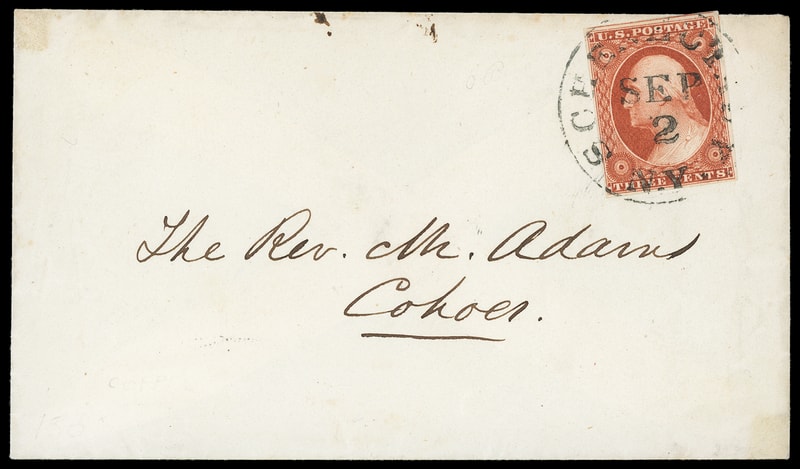 U.S. POSTAGE
SCHENECTADY
SEP
2
N.Y.
THREE CENTS
The Rev. Mr. Adams
Cohoes.